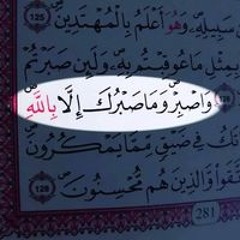 سَبِيلِهِۦ وَهُوَ أَعْلَمُ بِٱلْمُهْتَدِينَ ١٢٥
بِمِثْلِ مَا عُوقِبْتُم بِهِۦ وَلَئِن صَبَرْتُمْ
١٢٦ وَٱصْبِرْ وَمَا صَبْرُكَ إِلَّا بِٱللَّهِ
تَكُ فِى ضَيْقٍ مِّمَّا يَمْكُرُونَ
ٱتَّقَوا۟ وَّٱلَّذِينَ هُم مُّحْسِنُونَ ١٢٨
281